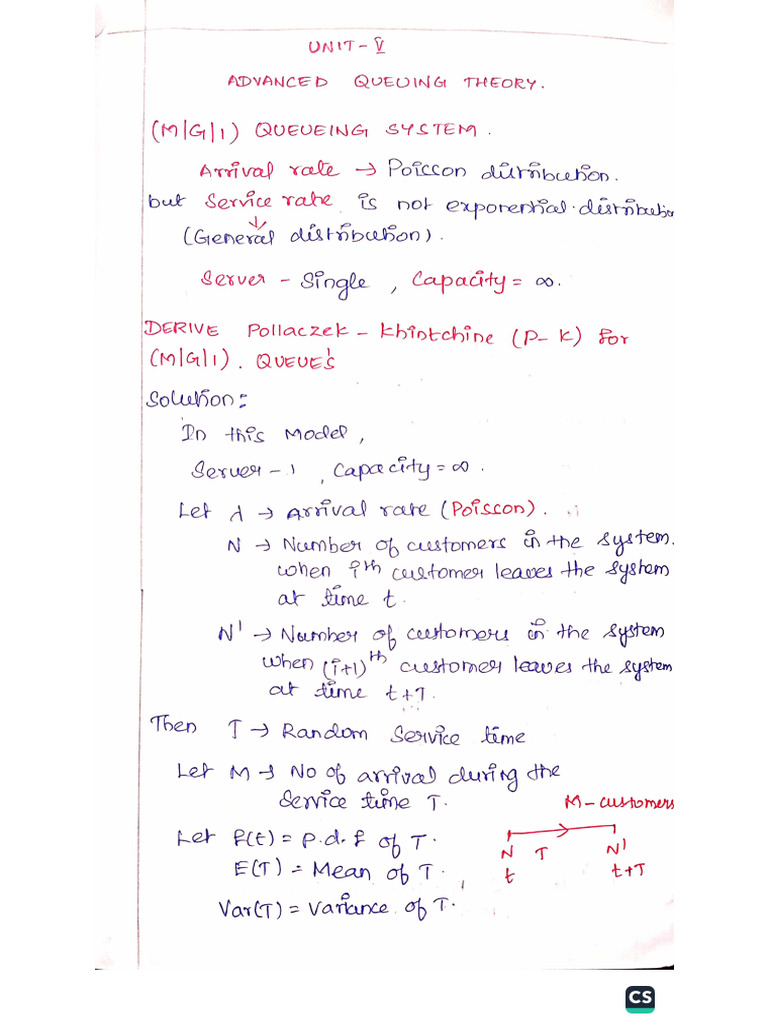 UNIT-V
ADVANCED QUEUING THEORY.
(M|G|1) QUEUEING SYSTEM.
Arrival rate → Poisson distribution.
but Service rate is not exponential distribution
↓
(General distribution).
Server - Single, Capacity = ∞.
DERIVE Pollaczek - Khintchine (P-K) for
(M|G|1). QUEUE's
Solution:
In this Model,
Server - 1, Capacity = ∞.
Let λ → Arrival rate (Poisson).
N → Number of customers in the system.
when iᵗʰ customer leaves the system
at time t.
N' → Number of customers in the system
when (i+1)ᵗʰ customer leaves the system
at time t+T.
Then T → Random Service time
Let M → No of arrival during the
Service time T.
M - customers
Let f(t) = p.d.f of T.
N T N'
E(T) = Mean of T.
t t+T
Var(T) = Variance of T.
CS